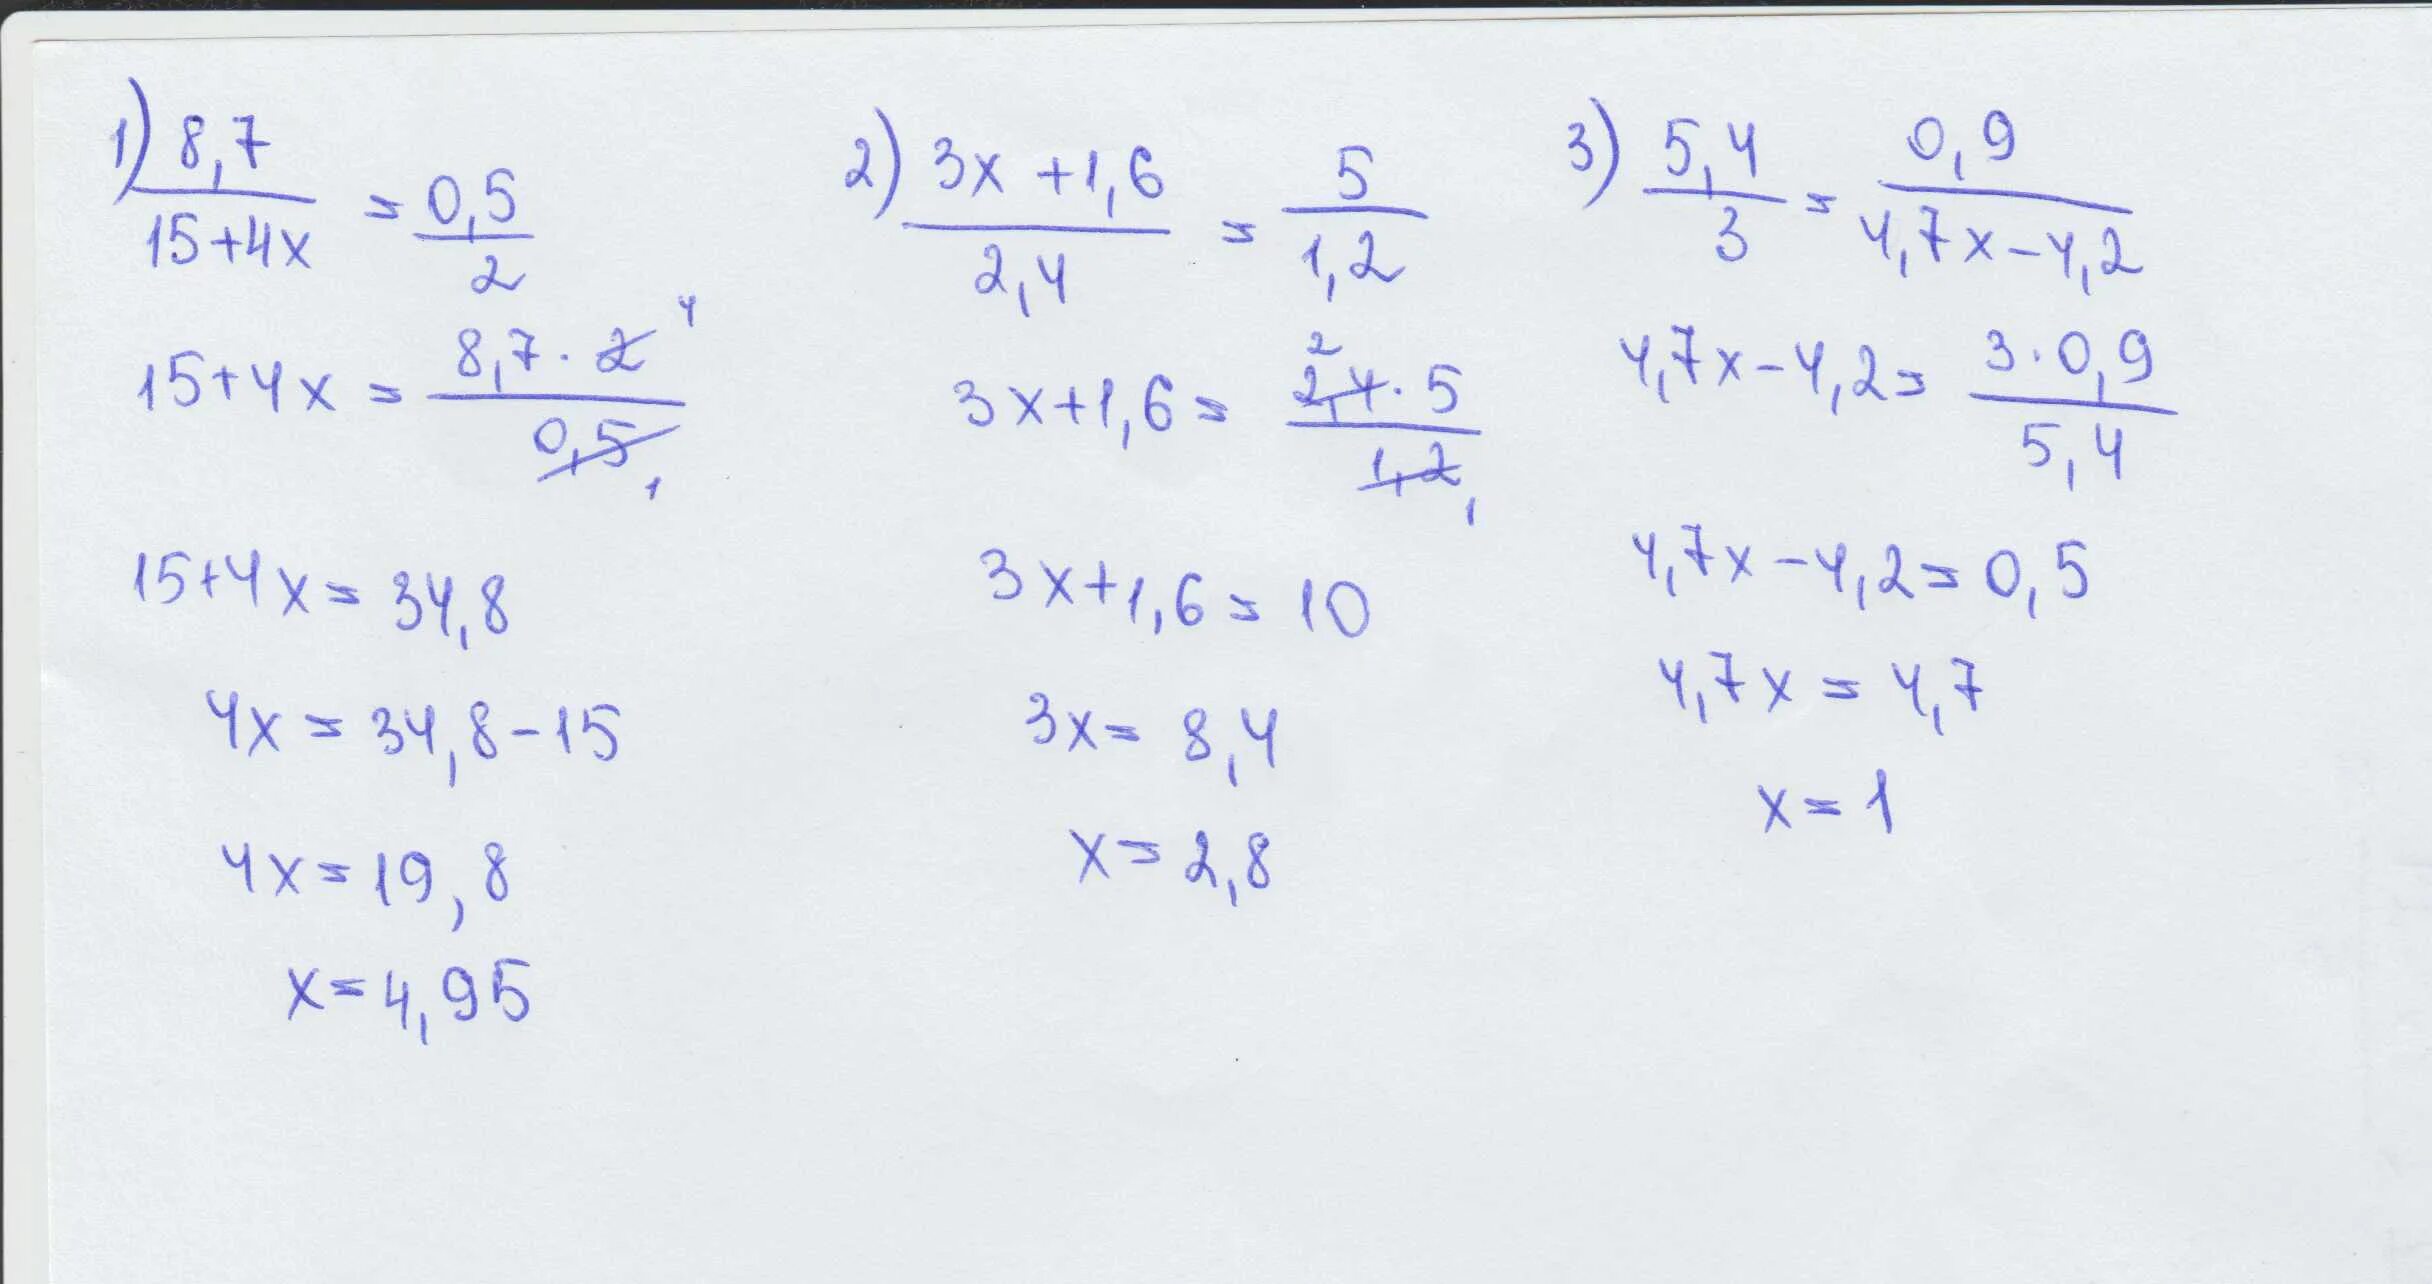 1) 8,7 / 15+4x = 0,5 / 2
15+4x = 8,7 · 2 4 / 0,5 1
15+4x = 34,8
4x = 34,8 - 15
4x = 19,8
x = 4,95
2) 3x + 1,6 / 2,4 = 5 / 1,2
3x+1,6 = 2 2,4 · 5 / 1,2 1
3x+1,6 = 10
3x = 8,4
x = 2,8
3) 5,4 / 3 = 0,9 / 4,7x - 4,2
4,7x - 4,2 = 3 · 0,9 / 5,4
4,7x - 4,2 = 0,5
4,7x = 4,7
x = 1